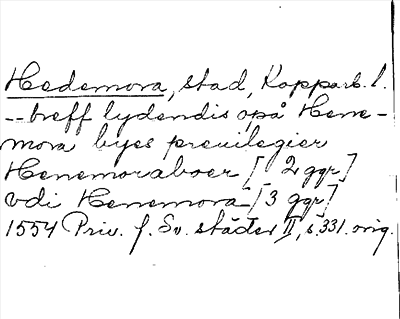 Hedemora, stad, Kopparb. l.
-- breff lydendis opå Hene-
mora byes preuilegier
Henemoraboer [2 ggr]
vdi Henemora [3 ggr]
1554 Priv. f. Sv. städer II, s. 331. orig.